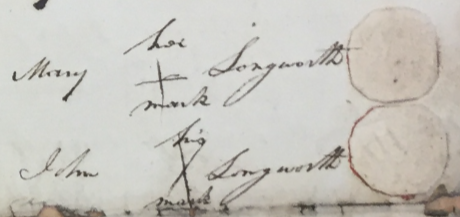 her
Mary + Longworth
mark
his
John X Longworth
mark